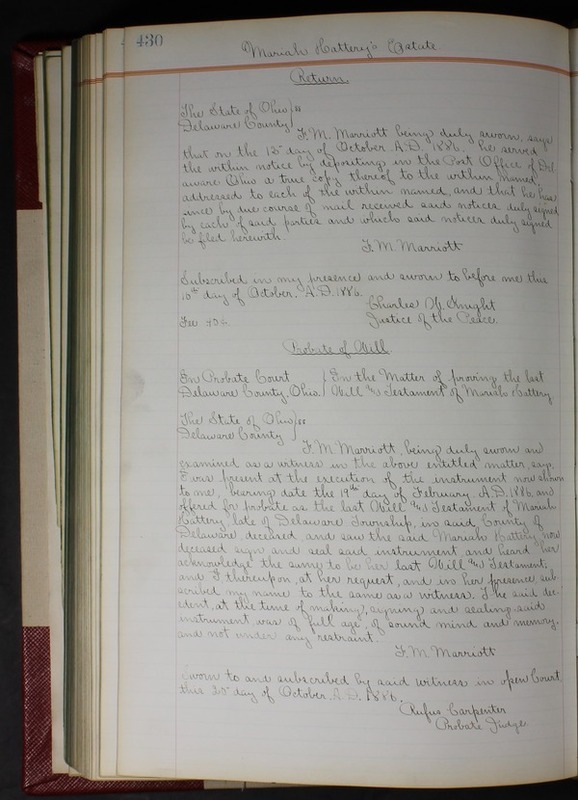 430
Mariah Hattery's Estate
Return.
The State of Ohio } ss
Delaware County
F. M. Marriott being duly sworn, says
that on the 13" day of October A.D. 1886. he served
the within notice by depositing in the Post Office of Del-
aware Ohio a true copy thereof to the within named,
addressed to each of the within named, and that he has
since by due course of mail received said notices duly signed
by each of said parties and which said notices duly signed
be filed herewith.
F. M. Marriott
Subscribed in my presence and sworn to before me this
day of October, A.D. 1886.
Charles H. Knight
Fee Justice of the Peace.
Probate of Will.
In Probate Court } In the Matter of proving the last
Delaware County, Ohio. Will and Testament of Mariah Hattery
The State of Ohio } ss
Delaware County
F. M. Marriott, being duly sworn and
examined as a witness in the above entitled matter, says,
I was present at the execution of the instrument now shown
to me, bearing date the 19th day of February A.D. 1886 and
offered for probate as the last Will and Testament of Mariah
Hattery late of Delaware Township, in said County of
Delaware, deceased, and saw the said Mariah Hattery now
deceased sign and seal said instrument, and heard her
acknowledge the same to be her last Will and Testament,
and I thereupon, at her request, and in her presence sub-
scribed my name to the same as a witness. The said dec-
edent, at the time of making, signing and sealing said
instrument was of full age, of sound mind and memory,
and not under any restraint.
F. M. Marriott
Sworn to and subscribed by said witness in open Court,
this day of October, A.D. 1886.
Rufus Carpenter
Probate Judge